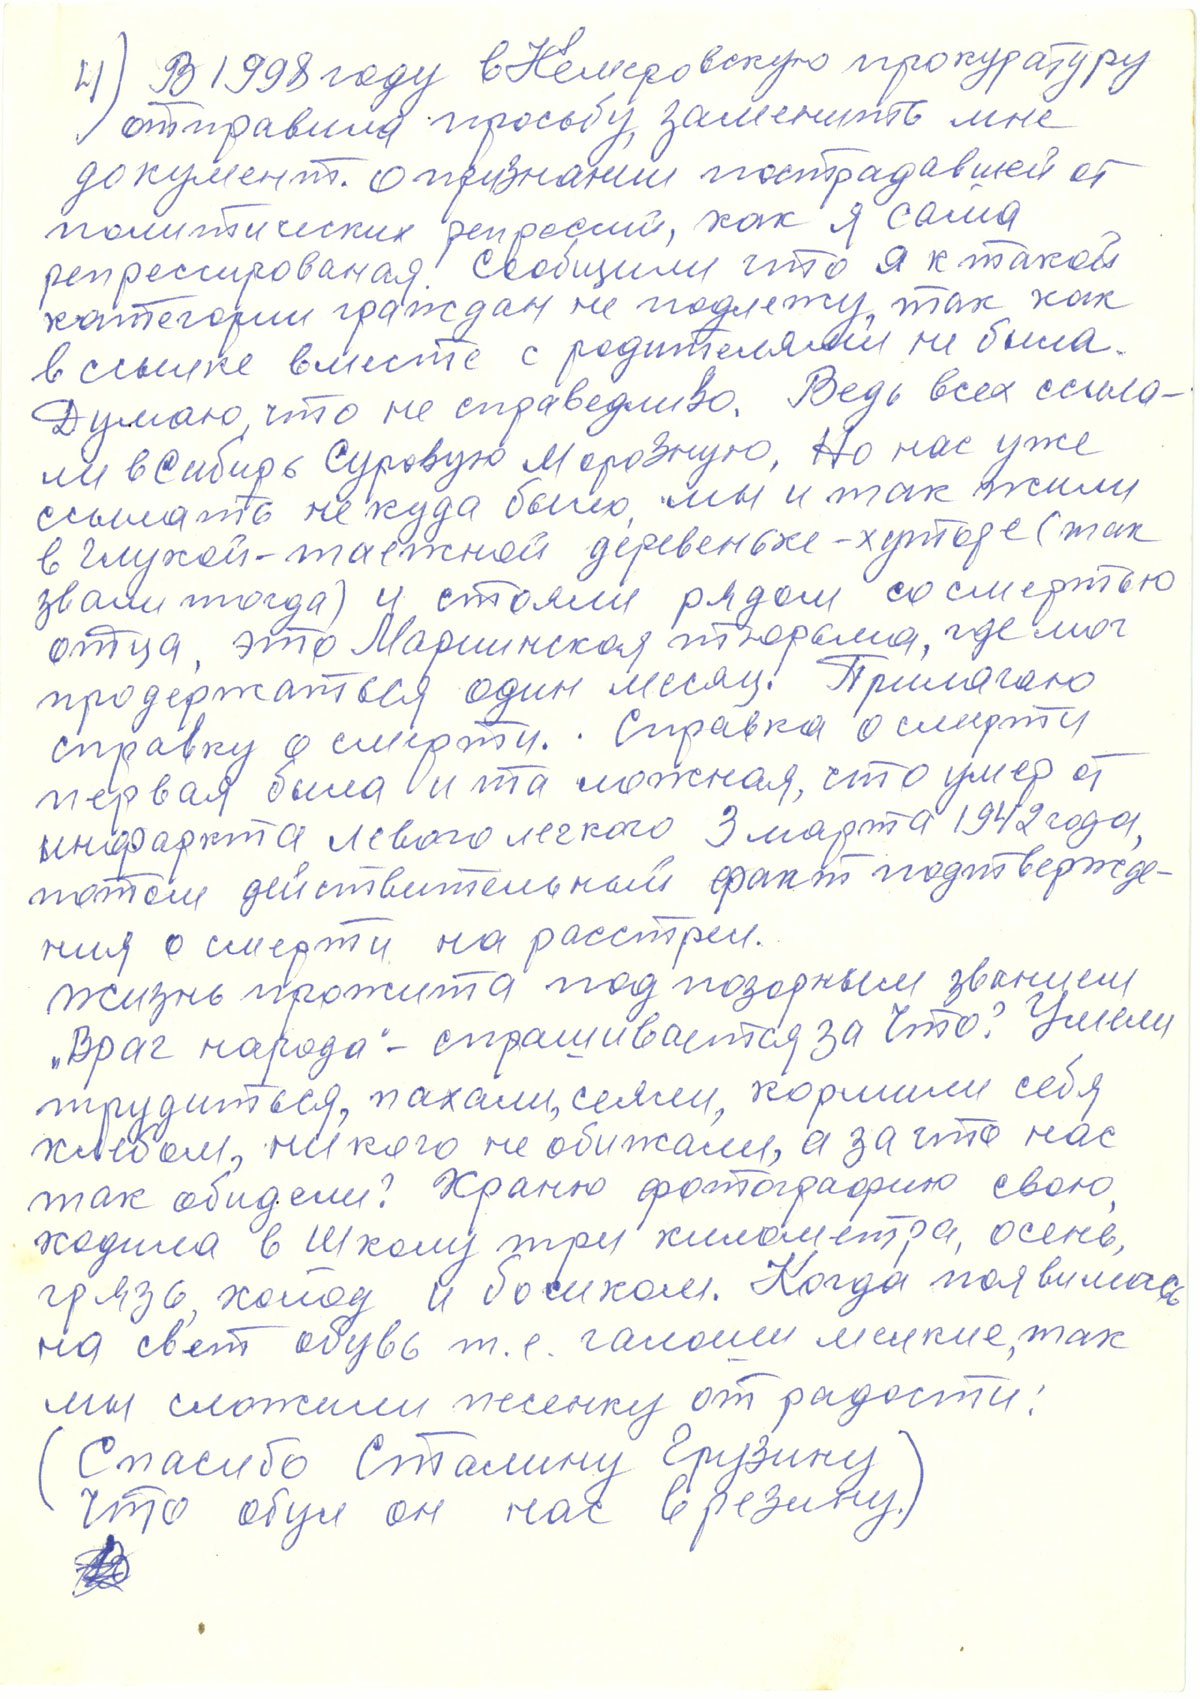 4) В 1998 году в Кемеровскую прокуратуру
отправила просьбу, заменить мне
документ. о признании пострадавшей от
политических репрессий, как я сама
репрессированая. Сообщили что я к такой
категории граждан не подлежу, так как
в ссылке вместе с родителями не была.
Думаю, что не справедливо. Ведь всех ссыла-
ли в Сибирь Суровую Морозную, Но нас уже
ссылать некуда было, мы и так жили
в глухой-таежной деревеньке-хуторе (так
звали тогда) и стояли рядом со смертью
отца, это Мариинская тюрьма, где мог
продержаться один месяц. Прилагаю
справку о смерти. Справка о смерти
первая была и та ложная, что умер от
инфаркта левого легкого 3 марта 1942 года,
потом действительный факт подтвержде-
ния о смерти на расстрел.
Жизнь прожита под позорным званием
"Враг народа" - спрашивается за Что? Умели
трудиться, пахали, сеяли, кормили себя
хлебом, никого не обижали, а за что нас
так обидели? Храню фотографию свою,
ходила в Школу три километра, осень,
грязь, холод и босиком. Когда появилась
на свет обувь т.е. галоши мелкие, так
мы сложили песенку от радости:
(Спасибо Сталину Грузину
Что обул он нас в резину.)